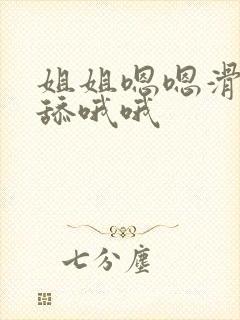 姐姐嗯嗯滑
舔哦哦
七分尘